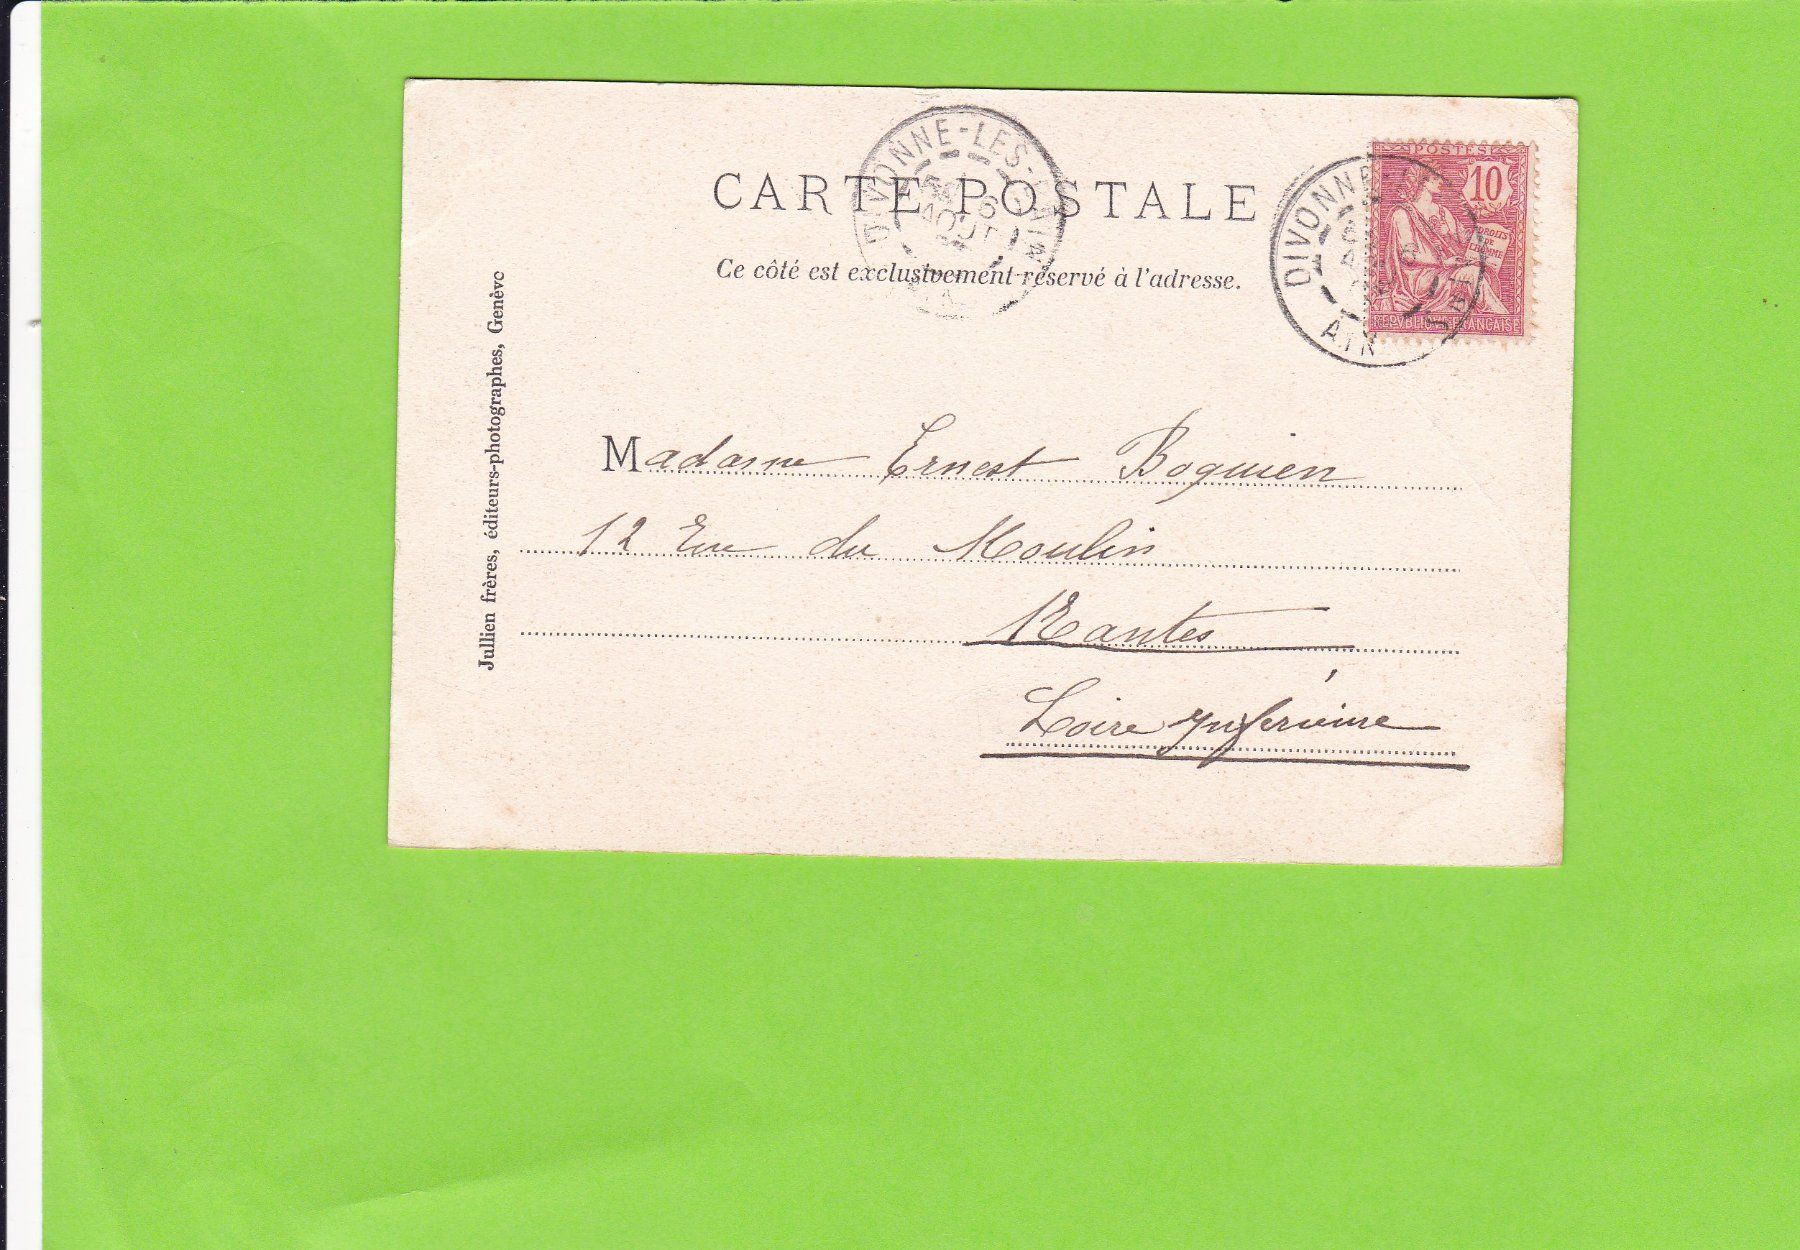 CARTE POSTALE
Ce côté est exclusivement réservé à l'adresse.
DIVONNE-LES-BAINS
6
AOUT
POSTES
10
DROITS
DE
L'HOMME
REPVBLIQUE FRANÇAISE
DIVONNE-LES-BAINS
AIN
Jullien frères, éditeurs-photographes, Genève
Madame Ernest Boquien
12 Rue du Moulin
Nantes
Loire Inférieure